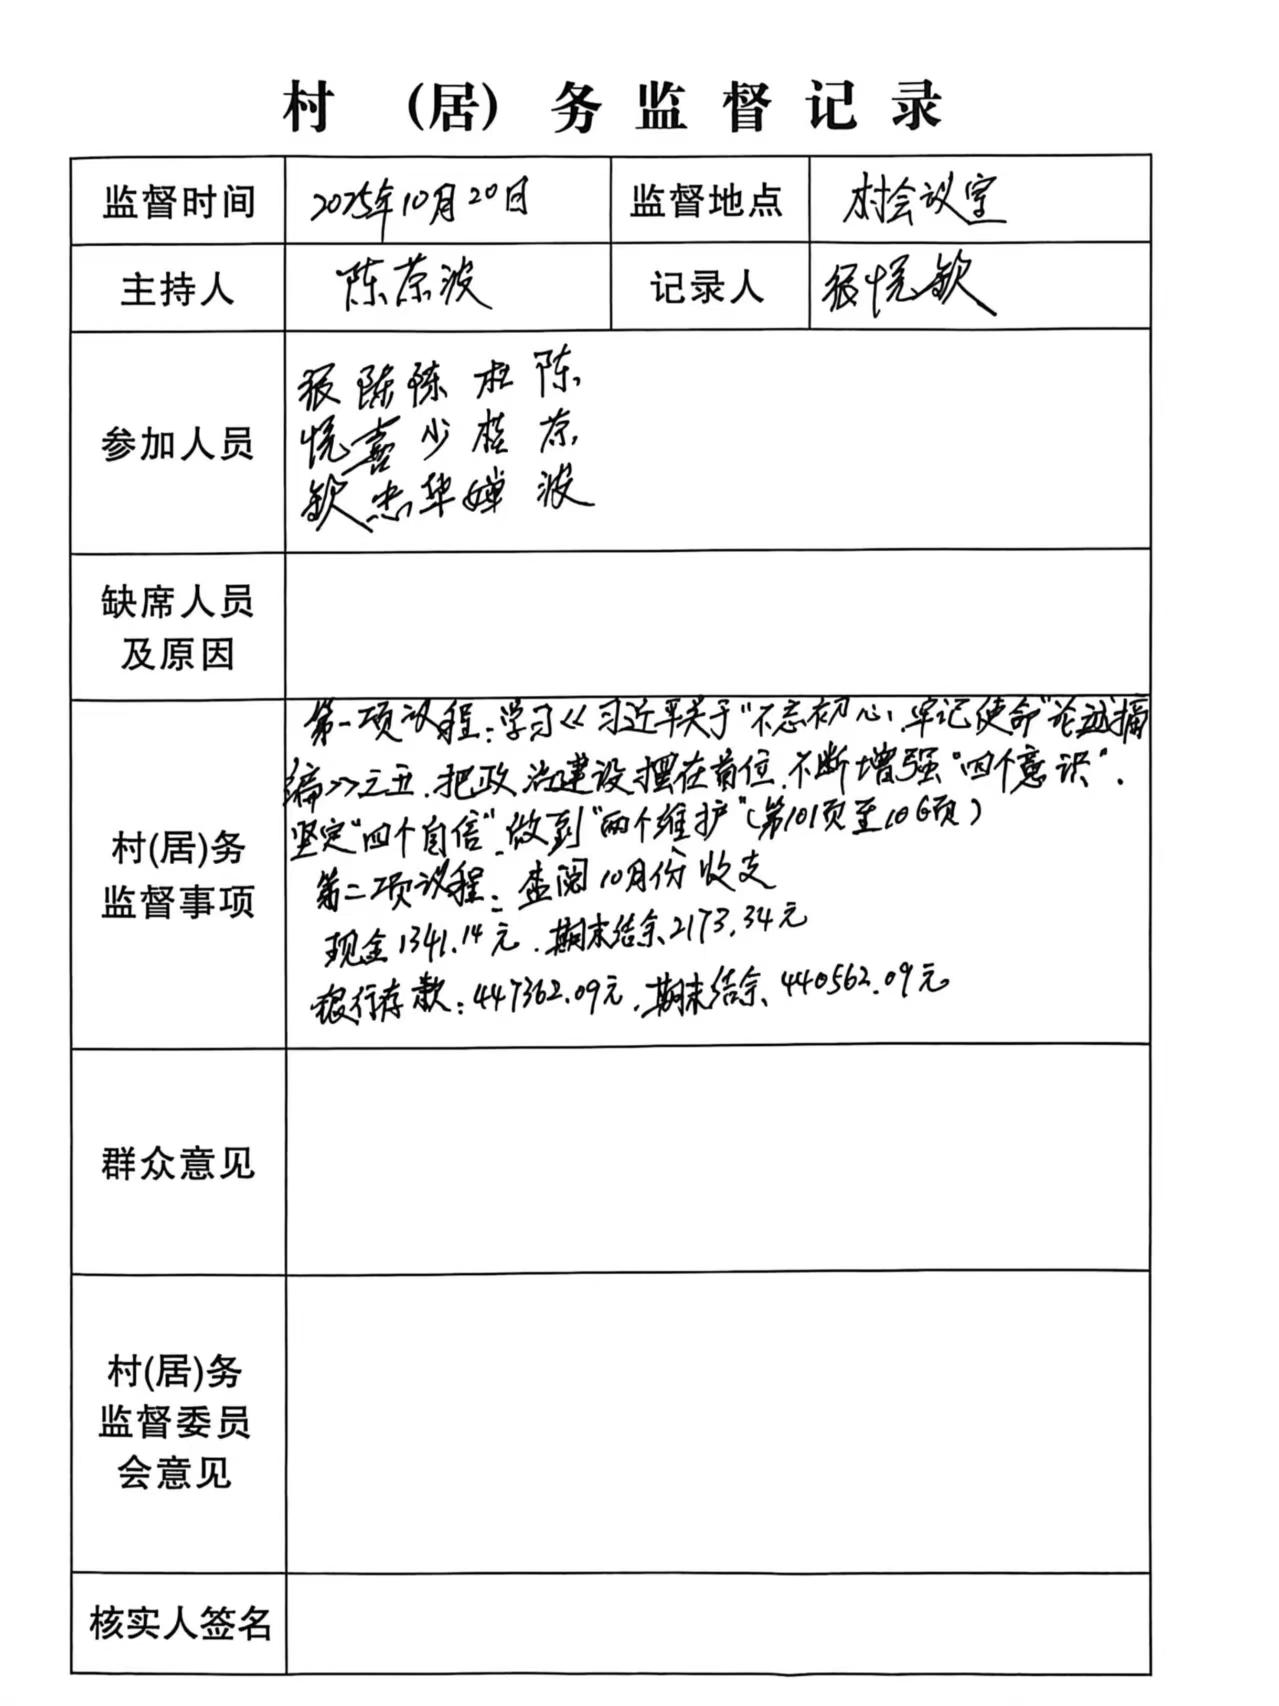 村 (居) 务 监 督 记 录
监督时间 2025年10月20日 监督地点 村会议室
主持人 陈荣波 记录人 张悦钦
参加人员
张悦钦 陈喜忠 陈少华 杜桂婵 陈荣波
缺席人员
及原因
村(居)务
监督事项
第一项议程:学习《习近平关于"不忘初心、牢记使命"论述摘
编》之五.把政治建设摆在首位.不断增强"四个意识".
坚定"四个自信".做到"两个维护"(第101页至106页)
第二项议程:查阅10月份收支
现金1341.14元.期末结余2173.34元
银行存款:447362.09元.期末结余440562.09元
群众意见
村(居)务
监督委员
会意见
核实人签名